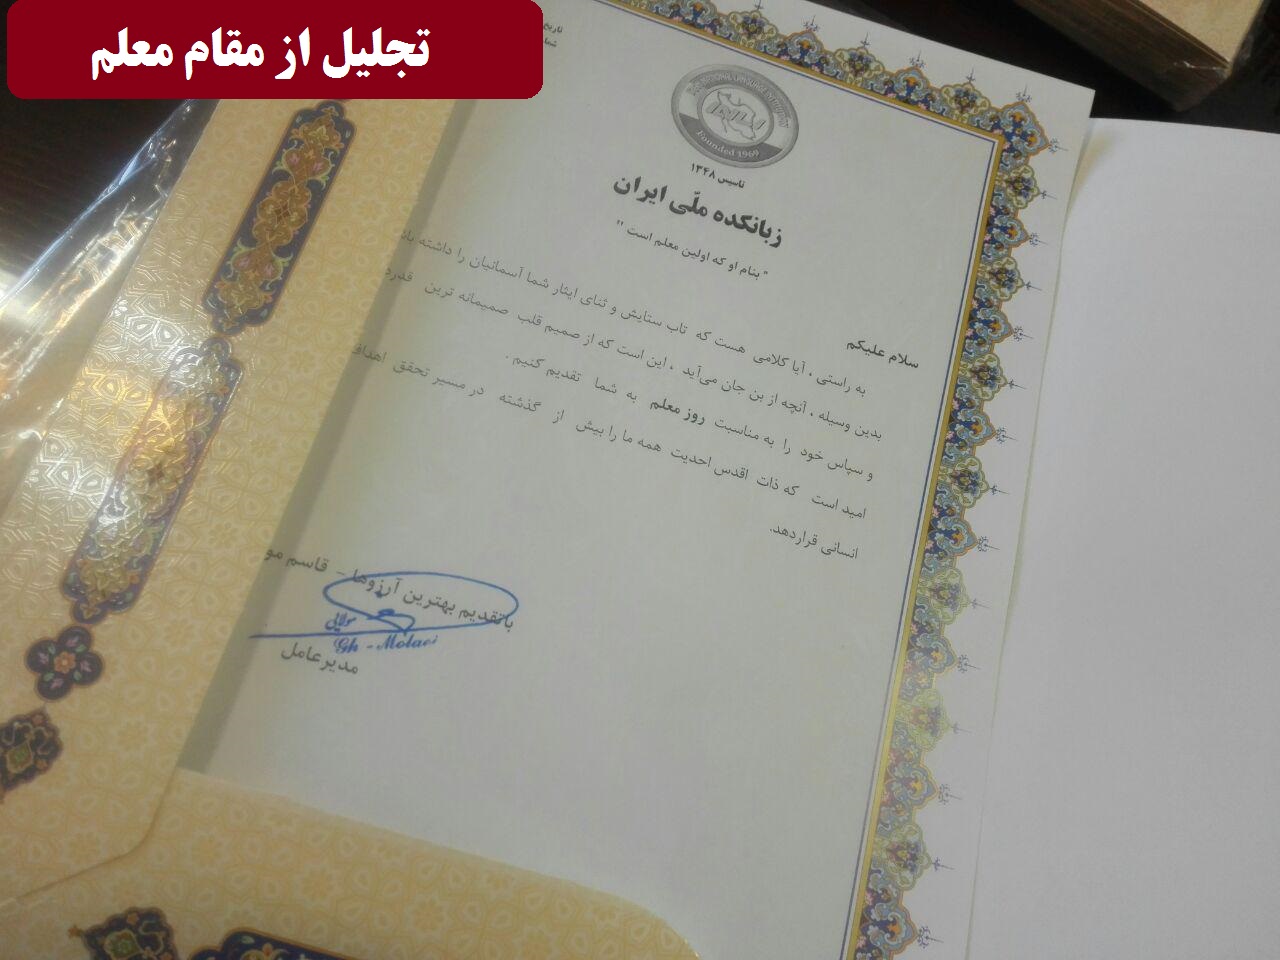 تجلیل از مقام معلم
تاریخ
IRAN NATIONAL LANGUAGE INSTITUTE
INLI
Founded 1969
تاسیس ۱۳۴۸
زبانکده ملّی ایران
" بنام او که اولین معلم است "
سلام علیکم
به راستی ، آیا کلامی هست که تاب ستایش و ثنای ایثار شما آسمانیان را داشته
بدین وسیله ، آنچه از بن جان می‌آید ، این است که از صمیم قلب صمیمانه ترین
و سپاس خود را به مناسبت روز معلم به شما تقدیم کنیم .
امید است که ذات اقدس احدیت همه ما را بیش از گذشته در مسیر تحقق اهداف
انسانی قراردهد.
با تقدیم بهترین آرزوها - قاسم
مولایی
Gh - Molaei
مدیرعامل